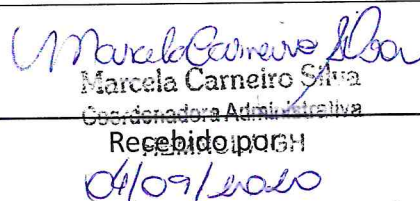 Marcela Carneiro Silva
Marcela Carneiro Silva
Coordenadora Administrativa
Recebido por:
04/09/2020